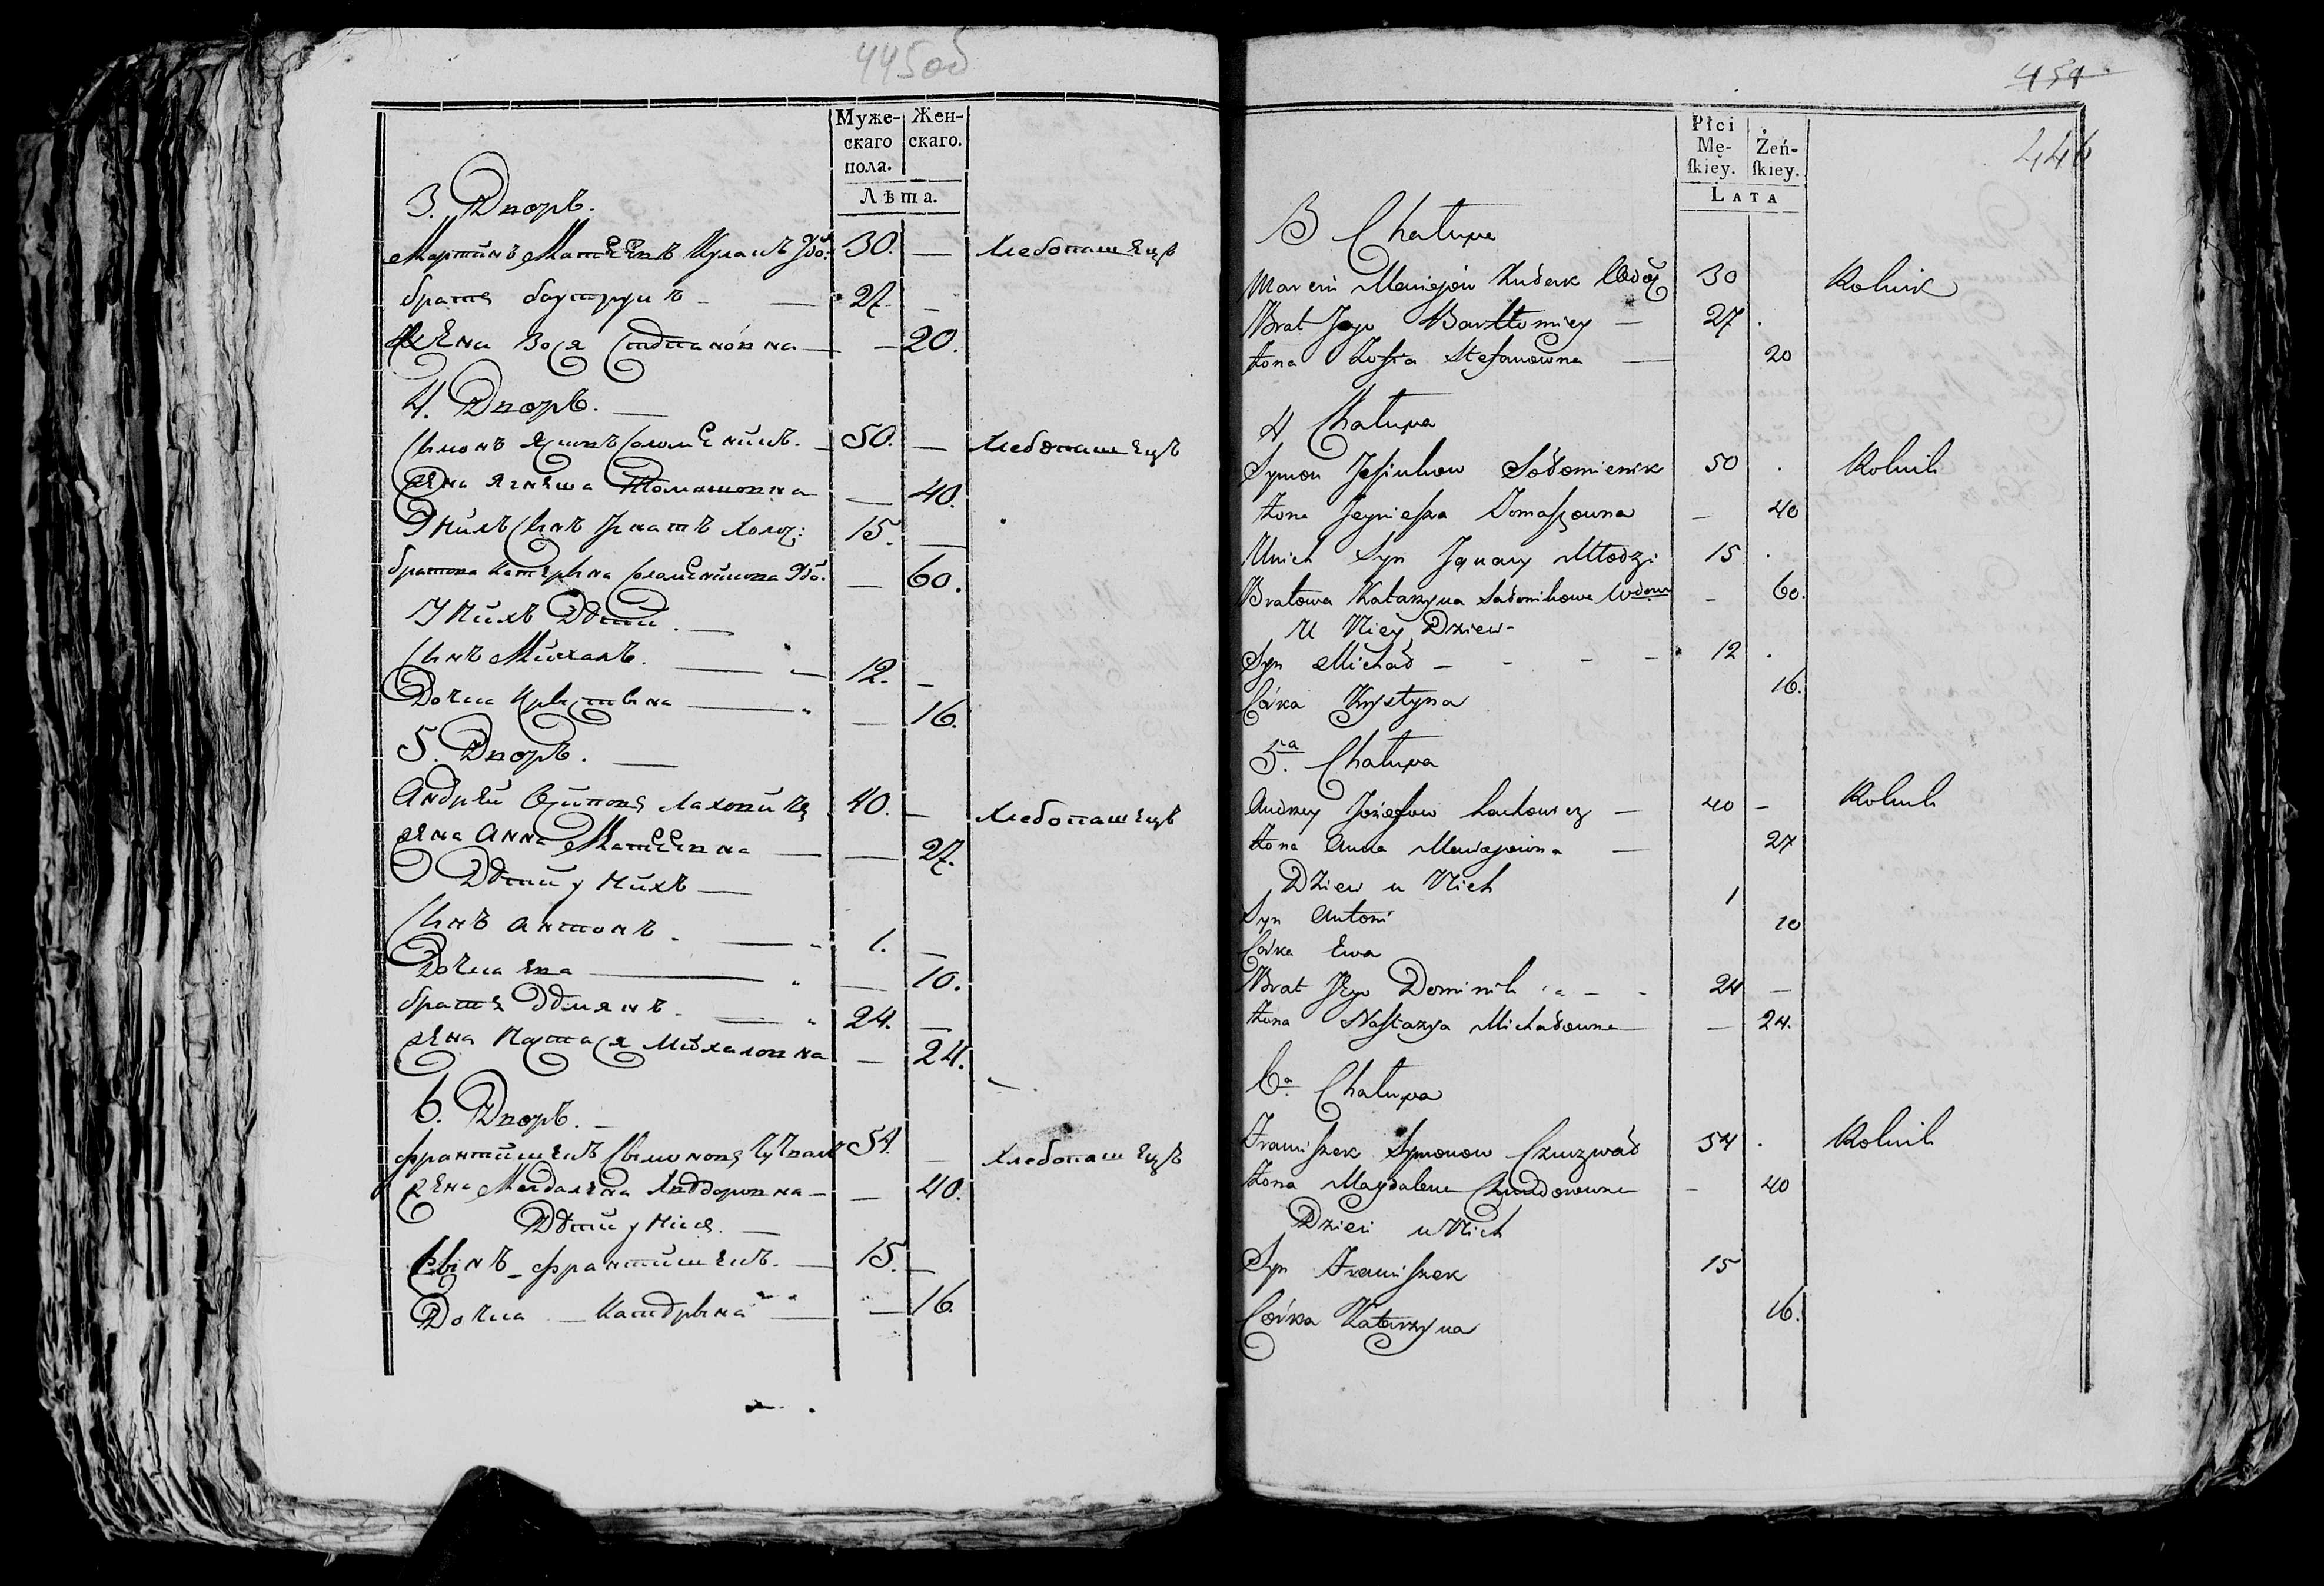 445об
Муже-
скаго
пола.
Жен-
скаго.
Лѣта.
3. Дворъ.
Мартинъ Матеевъ Кулакъ Вдо: 30. — Хлебопашецъ
братъ 27. —
жена Зося Стэпановна — — 20.
4. Дворъ. —
Сымонъ 50. — Хлебопашецъ
жена Агнеша Томашовна — 40.
У нихъ сынъ Игнатъ холос: 15. —
братова Катерына Вдо. — 60.
У нихъ Дѣти. —
сынъ Михалъ. — 12. —
Дочка Крыстына — — 16.
5. Дворъ. —
Андрей Лаховичъ 40. — Хлебопашецъ
жена Анна Матеевна — — 27.
Дѣти у нихъ —
сынъ Антонъ. — 1. —
Дочка Ева — — 10.
братъ — 24. —
жена Настася Михаловна — 24.
6. Дворъ. —
Франтишекъ Сымоновъ 54. — Хлебопашецъ
жена Магдалена — — 40.
Дѣти у нихъ. —
Сынъ — Франтишекъ. — 15. —
Дочка — Катэрына — — 16.
454
446
Płci
Mę-
ſkiéy.
Żeń-
ſkiey.
LATA
3 Chałupa
Marcin Maciejów Kudak Wdo: 30 Rolnik
Brat Jego Bartłomiey — 27 .
Żona Zofia Stefanowna — 20
4 Chałupa
Symon Sołomienik 50 . Rolnik
Żona Jagnieszka Tomaszowna — 40
U nich Syn Ignacy Młodzi: 15 .
Bratowa Katarzyna Wdowa — 60.
U Niey Dziew-
Syn Michał — - - - 12 .
Córka Krystyna 16.
5.a Chałupa
Andrzey Jozefow Lachowicz — 40 — Rolnik
Żona Anna Maciejowna — 27
Dziew u Nich
Syn Antoni 1
Córka Ewa 10
Brat Jego Dominik - - 24 —
Żona Nastazya Michałowna — — 24.
6.a Chałupa
Franciszek Symonow 54 . Rolnik
Żona Magdalena - 40
Dzieci u Nich
Syn Franciszek 15
Córka Katarzyna 16.